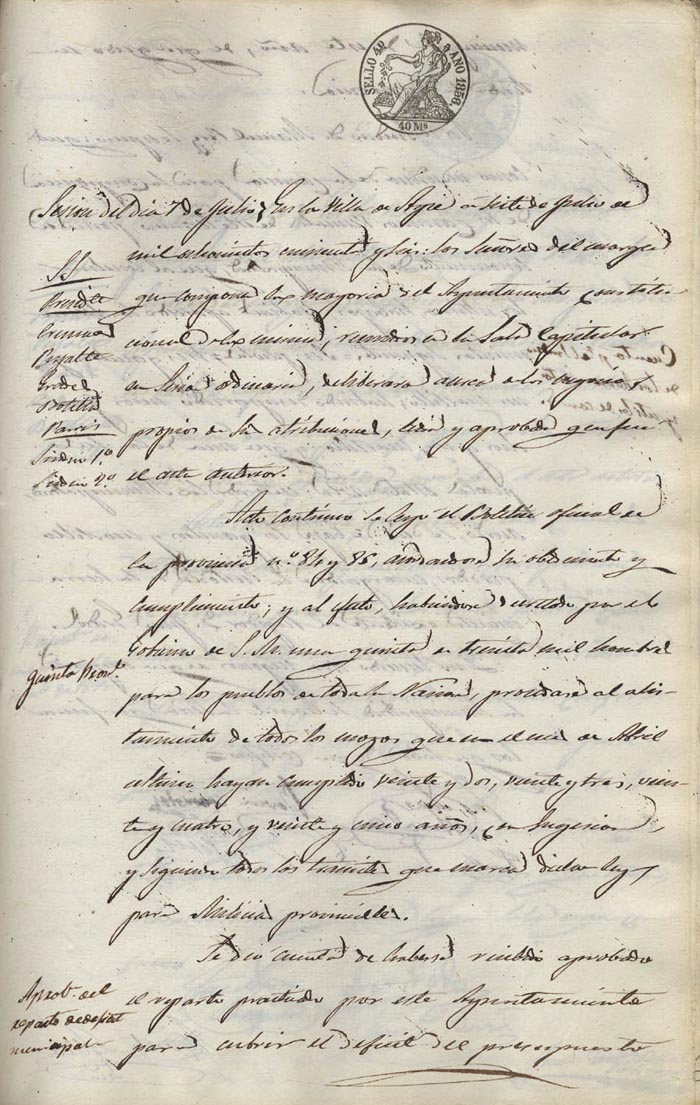 SELLO 4º AÑO 1856.
40 Ms
Sesion del dia 7 de Julio, En la villa de Aspe a siete de Julio de
mil ochocientos cincuenta y seis: los Señores del margen
que componen la mayoria del Ayuntamiento constitu-
cional de la misma, reunidos en la Sala Capitular
en Sesion ordinaria, deliberaron acerca de los negocios
propios de sus atribuciones, leida y aprobada que fue
el acta anterior.
SS
Presid.te
Cremades
Sindico 1º
Sindico 2º
Acto continuo se leyo el Boletin oficial de
la provincia nº 84 y 85, acordandose su obediencia y
cumplimiento; y al efecto, habiendose decretado por el
Gobierno de S. M. una quinta de treinta mil hombres
para los pueblos de toda la Nacion, procedase al alis-
tamiento de todos los mozos que en el mes de Abril
ultimo hayan cumplido veinte y dos, veinte y tres, vein-
te y cuatro, y veinte y cinco años,
y siguiendo todos los tramites que marca dicha ley
para Milicias provinciales.
Se dio cuenta de haberse recibido aprobado
el reparto practicado por este Ayuntamiento
para cubrir el deficit del presupuesto
Aprob. del
reparto de deficit
municipal